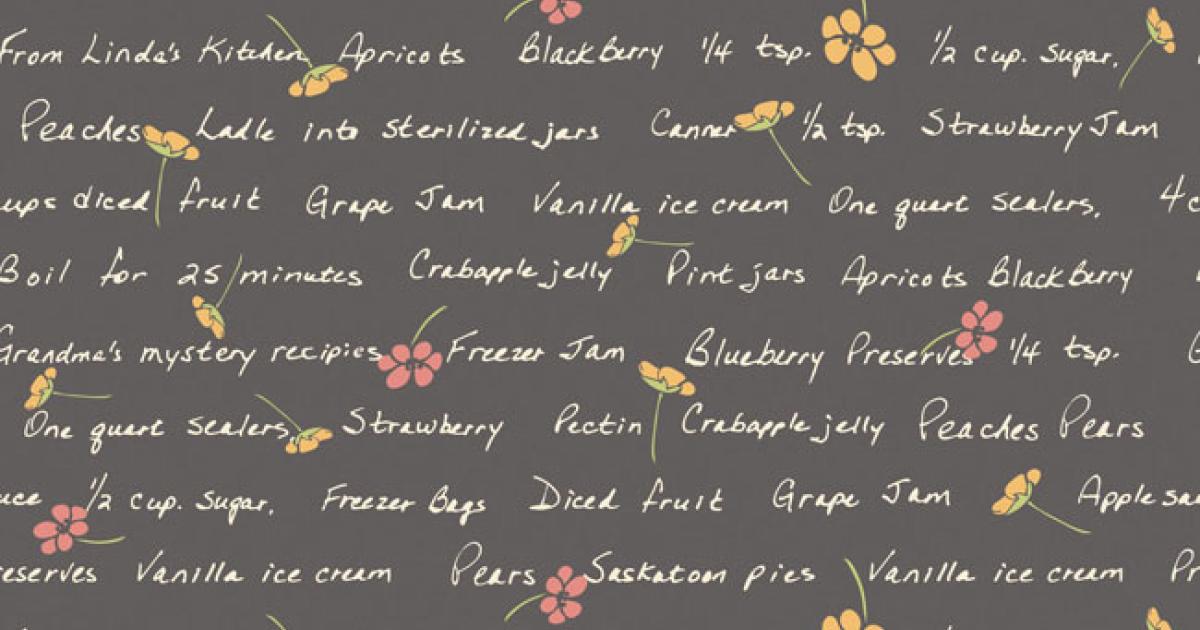 From Linda's Kitchen Apricots Blackberry 1/4 tsp. 1/2 cup. sugar.
Peaches Ladle into sterilized jars Canner 1/2 tsp. Strawberry Jam
ups diced fruit Grape Jam Vanilla ice cream One quart sealers. 4 c
Boil for 25 minutes Crabapple jelly Pint jars Apricots Blackberry
Grandma's mystery recipies Freezer Jam Blueberry Preserves 1/4 tsp.
One quart sealers. Strawberry Pectin Crabapple jelly Peaches Pears
uce 1/2 cup. sugar. Freezer Bags Diced fruit Grape Jam Apple sa
eserves Vanilla ice cream Pears Saskatoon pies Vanilla ice cream Pr